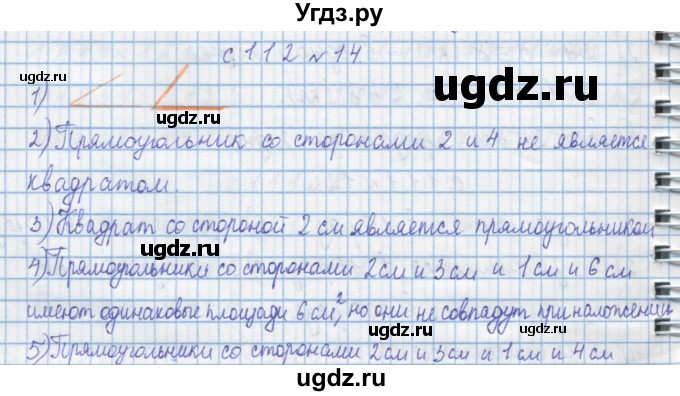 Угдз.ру
с. 112 № 14
ugdz.ru
ugdz.ru
ugdz.ru
1)
ugdz.ru
2) Прямоугольник со сторонами 2 и 4 не является
квадратом.
ugdz.ru
ugdz.ru
3) Квадрат со стороной 2 см является прямоугольником
ugdz.ru
4) Прямоугольники со сторонами 2 см и 3 см и 1 см и 6 см
имеют одинаковые площади 6 см², но они не совпадут при наложении
ugdz.ru
ugdz.ru
5) Прямоугольники со сторонами 2 см и 3 см и 1 см и 4 см
ugdz.ru